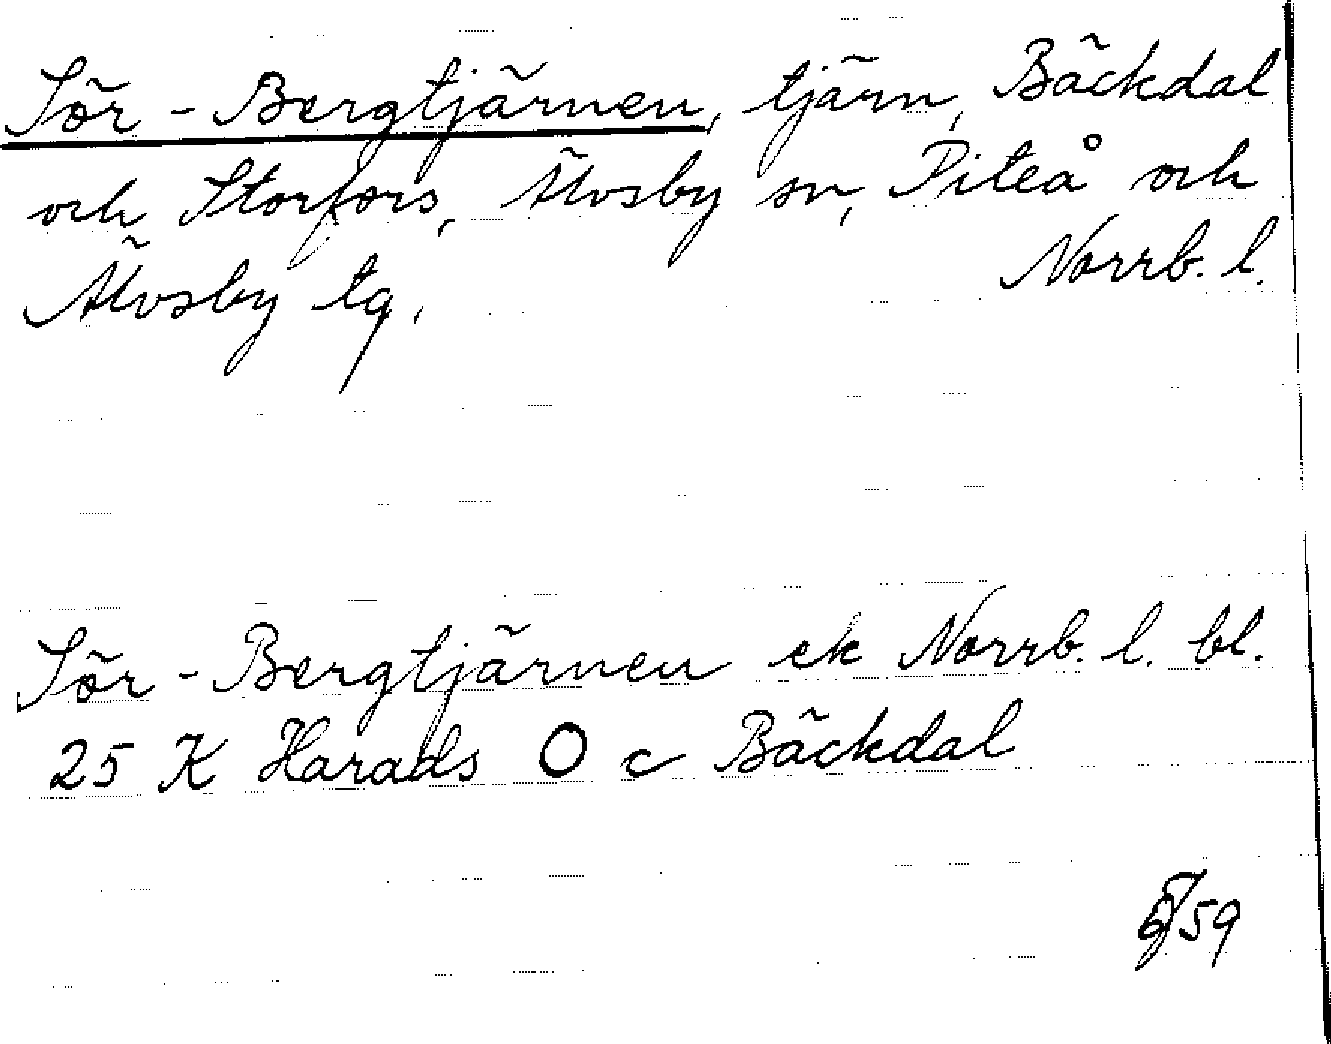 Sör-Bergtjärnen, tjärn, Bäckdal
och Storfors, Älvsby sn, Piteå och
Älvsby tg. Norrb. l.
Sör-Bergtjärnen ek Norrb. l. bl.
25 K Harads O c Bäckdal
59